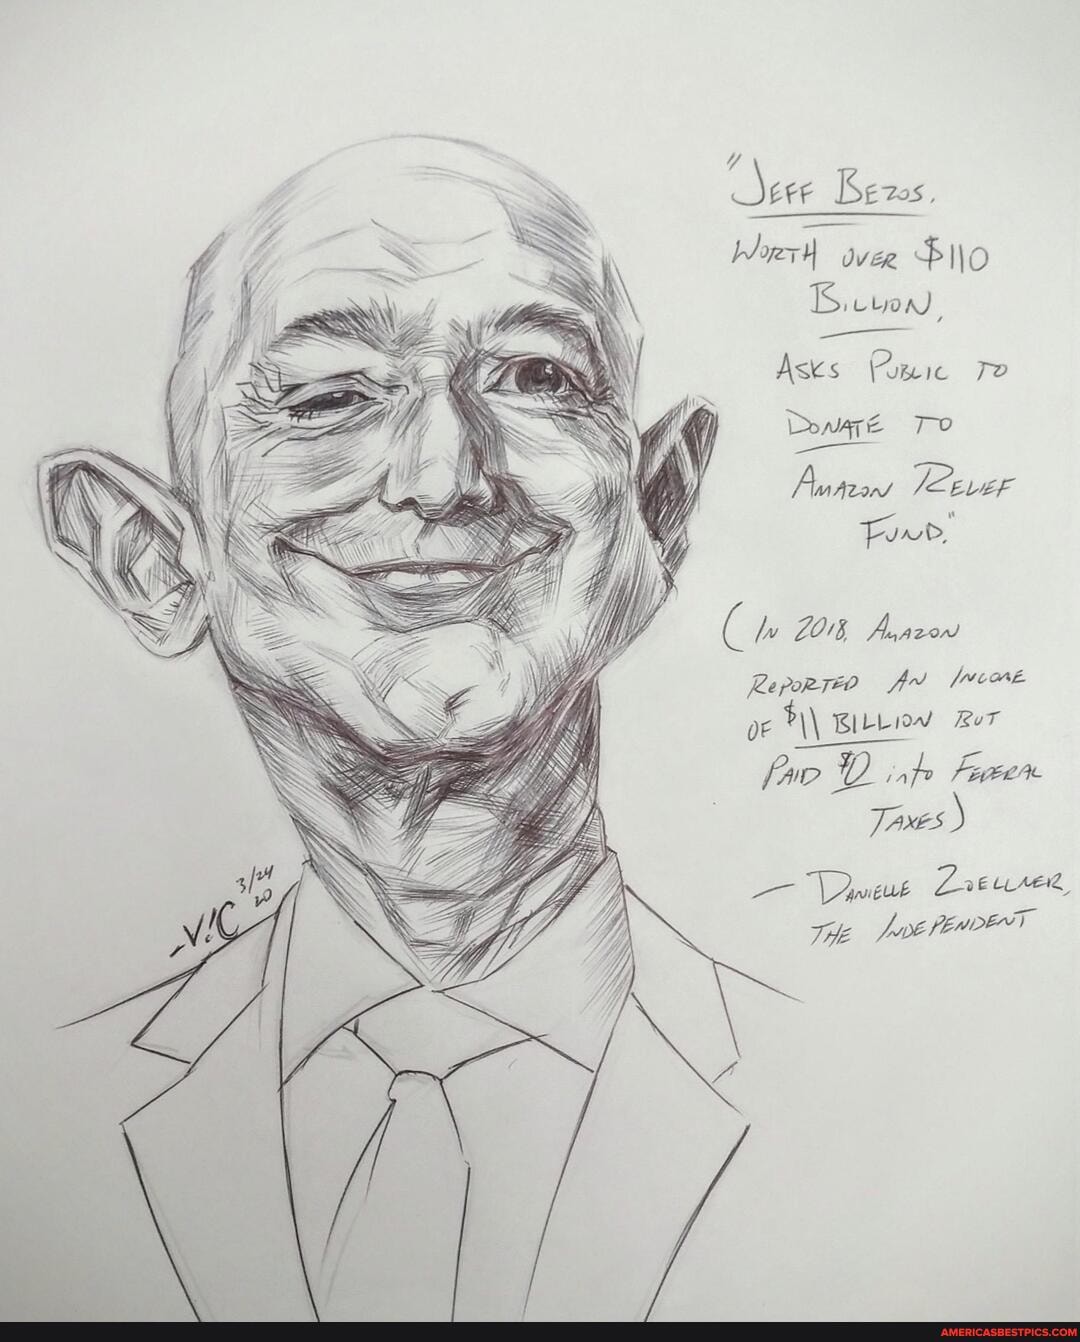 "JEFF BEZOS,
WORTH OVER $110
BILLION,
ASKS PUBLIC TO
DONATE TO
AMAZON RELIEF
FUND."
(IN 2018, AMAZON
REPORTED AN INCOME
OF $11 BILLION BUT
PAID $0 into FEDERAL
TAXES)
— DANIELLE ZOELLNER,
THE INDEPENDENT
3/24
20
-V!C
AMERICASBESTPICS.COM